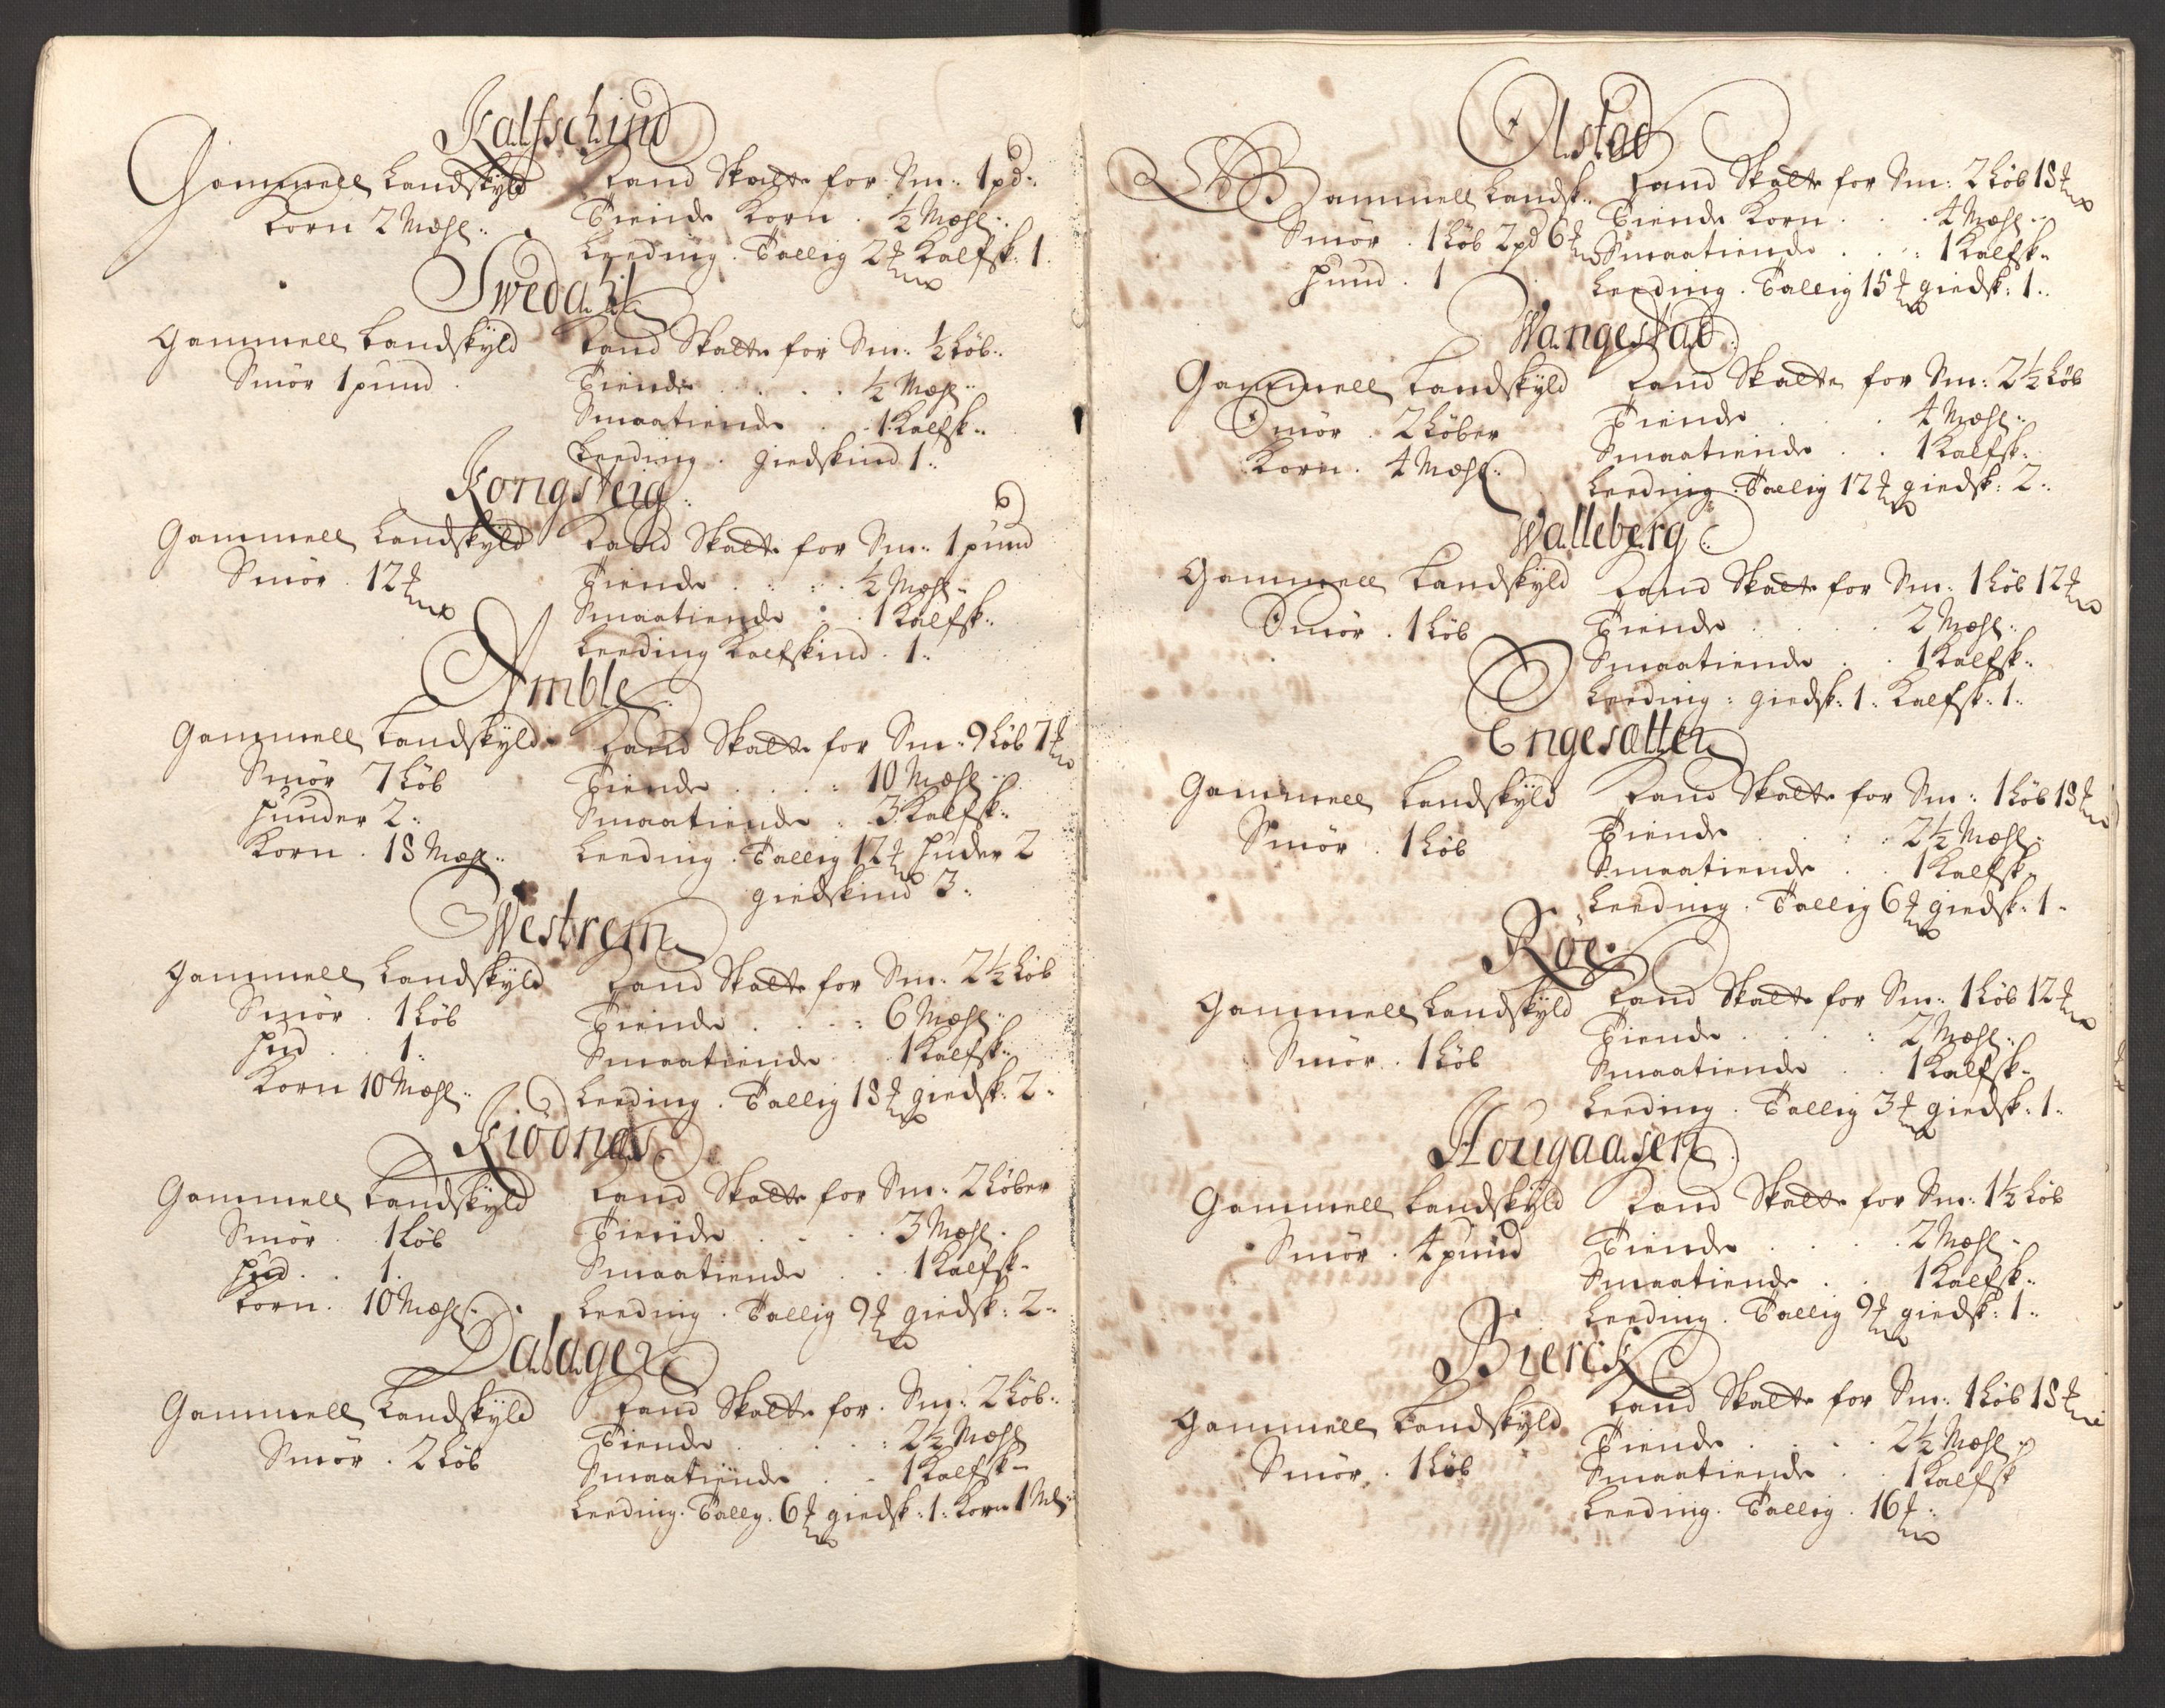 Kalfschind
Gammell Landskyld
Korn 2 Mæhl:
Land Skatt for Sm: 1 pd:
Tiende Korn . ½ Mæhl:
Leeding . Tallig 2 ℔ Kalfsk: 1.
Swedahl
Gammell Landskyld
Smör 1 pund .
Land Skatte for Sm: ½ Löb:
Tiende . . . . ½ Mæhl:
Smaatiende . . 1 Kalfsk:
Leeding . giedskind 1:
Kongsteig:
Gammell Landskyld
Smör . 12 ℔
Land Skatt for Sm: 1 pund
Tiende . . . . ½ Mæhl:
Smaatiende . . 1 Kalfsk:
Leeding Kalfskind . 1:
Amble
Gammell Landskyld
Smör 7 Löb
Huuder 2:
Korn . 18 Mæhl:
Land Skatt for Sm: 9 Löb 7 ℔
Tiende . . . . 10 Mæhl:
Smaatiende . 3 Kalfsk:
Leeding . Tallig 12 ℔ Huder 2
giedskind 3:
Westrem
Gammell Landskyld
Smör . 1 Löb
Hud . . 1:
Korn 10 Mæhl:
Land Skatt for Sm: 2½ Löb
Tiende . . . : 6 Mæhl:
Smaatiende . . 1 Kalfsk:
Leeding . Tallig 18 ℔ giedsk: 2:
Kiödnæs
Gammell Landskyld
Smör . 1 Löb
Hud . . 1.
Korn . 10 Mæhl:
Land Skatt for Sm: 2 Löber
Tiende . . . . 3 Mæhl.
Smaatiende . . 1 Kalfsk:
Leeding . Tallig 9 ℔ giedsk: 2:
Dalager
Gammell Landskyld
Smör . 2 Löb
Land Skatt for . Sm: 2 Löb:
Tiende . . . . : 2½ Mæhl
Smaatiende . . 1 Kalfsk:
Leeding . Tallig . 6 ℔ giedsk: 1: Korn 1 Ml:
Olstad
Gammell Landsk:
Smör . 1 Löb 2 pd 6 ℔
Huud . 1
Land Skatt for Sm: 2 Löb 18 ℔
Tiende Korn . . . 4 Mæhl:
Smaatiende . . : 1 Kalfsk:
Leeding . Tallig 15 ℔ giedsk: 1:
Wangestad:
Gammell Landskyld
Smör . 2 Löber
Korn . 4 Mæhl:
Land Skatte for Sm: 2½ Löb
Tiende . . . 4 Mæhl:
Smaatiende . . 1 Kalfsk:
Leeding . Tallig 12 ℔ giedsk: 2:
Walleberg
Gammell Landskyld
Smör . 1 Löb
Land Skatt for Sm: 1 Löb 12 ℔
Tiende . . . . 2 Mæhl:
Smaatiende . . 1 Kalfsk:
Leeding : giedsk: 1: Kalfsk: 1:
Engesætter
Gammell Landskyld
Smör . 1 Löb
Land Skatt for Sm: 1 Löb 18 ℔
Tiende . . : : 2½ Mæhl:
Smaatiende . . 1 Kalfsk:
Leeding . Tallig 6 ℔ giedsk: 1:
Röe:
Gammell Landskyld
Smör . 1 Löb
Land Skatt for Sm: 1 Löb 12 ℔
Tiende . . . : 2 Mæhl:
Smaatiende . . 1 Kalfsk:
Leeding . Tallig 3 ℔ giedsk: 1:
Hougaasen
Gammell Landskyld
Smör . 4 pund
Land Skatt for Sm: 1½ Löb
Tiende . . . . 2 Mæhl:
Smaatiende . . 1 Kalfsk:
Leeding . Tallig 9 ℔ giedsk: 1:
Bierck
Gammell Landskyld
Smör . 1 Löb
Land Skatt for Sm: 1 Löb 18 ℔
Tiende . . . . 2½ Mæhl
Smaatiende . . 1 Kalfsk
Leeding . Tallig . 16 ℔: